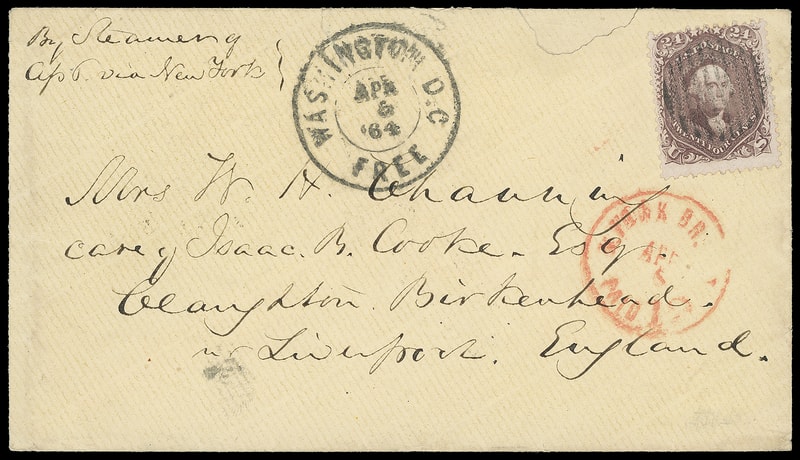 By Steamer of
Apl 6. via New York
WASHINGTON D.C.
APR
5
'64
FREE
24 24
U.S. POSTAGE
TWENTY FOUR CENTS
U S
Mrs W. H. Channing
care of Isaac. B. Cooke. Esq.
Claughton. Birkenhead.
nr Liverpool. England.
N. YORK BR.
APR
PAID